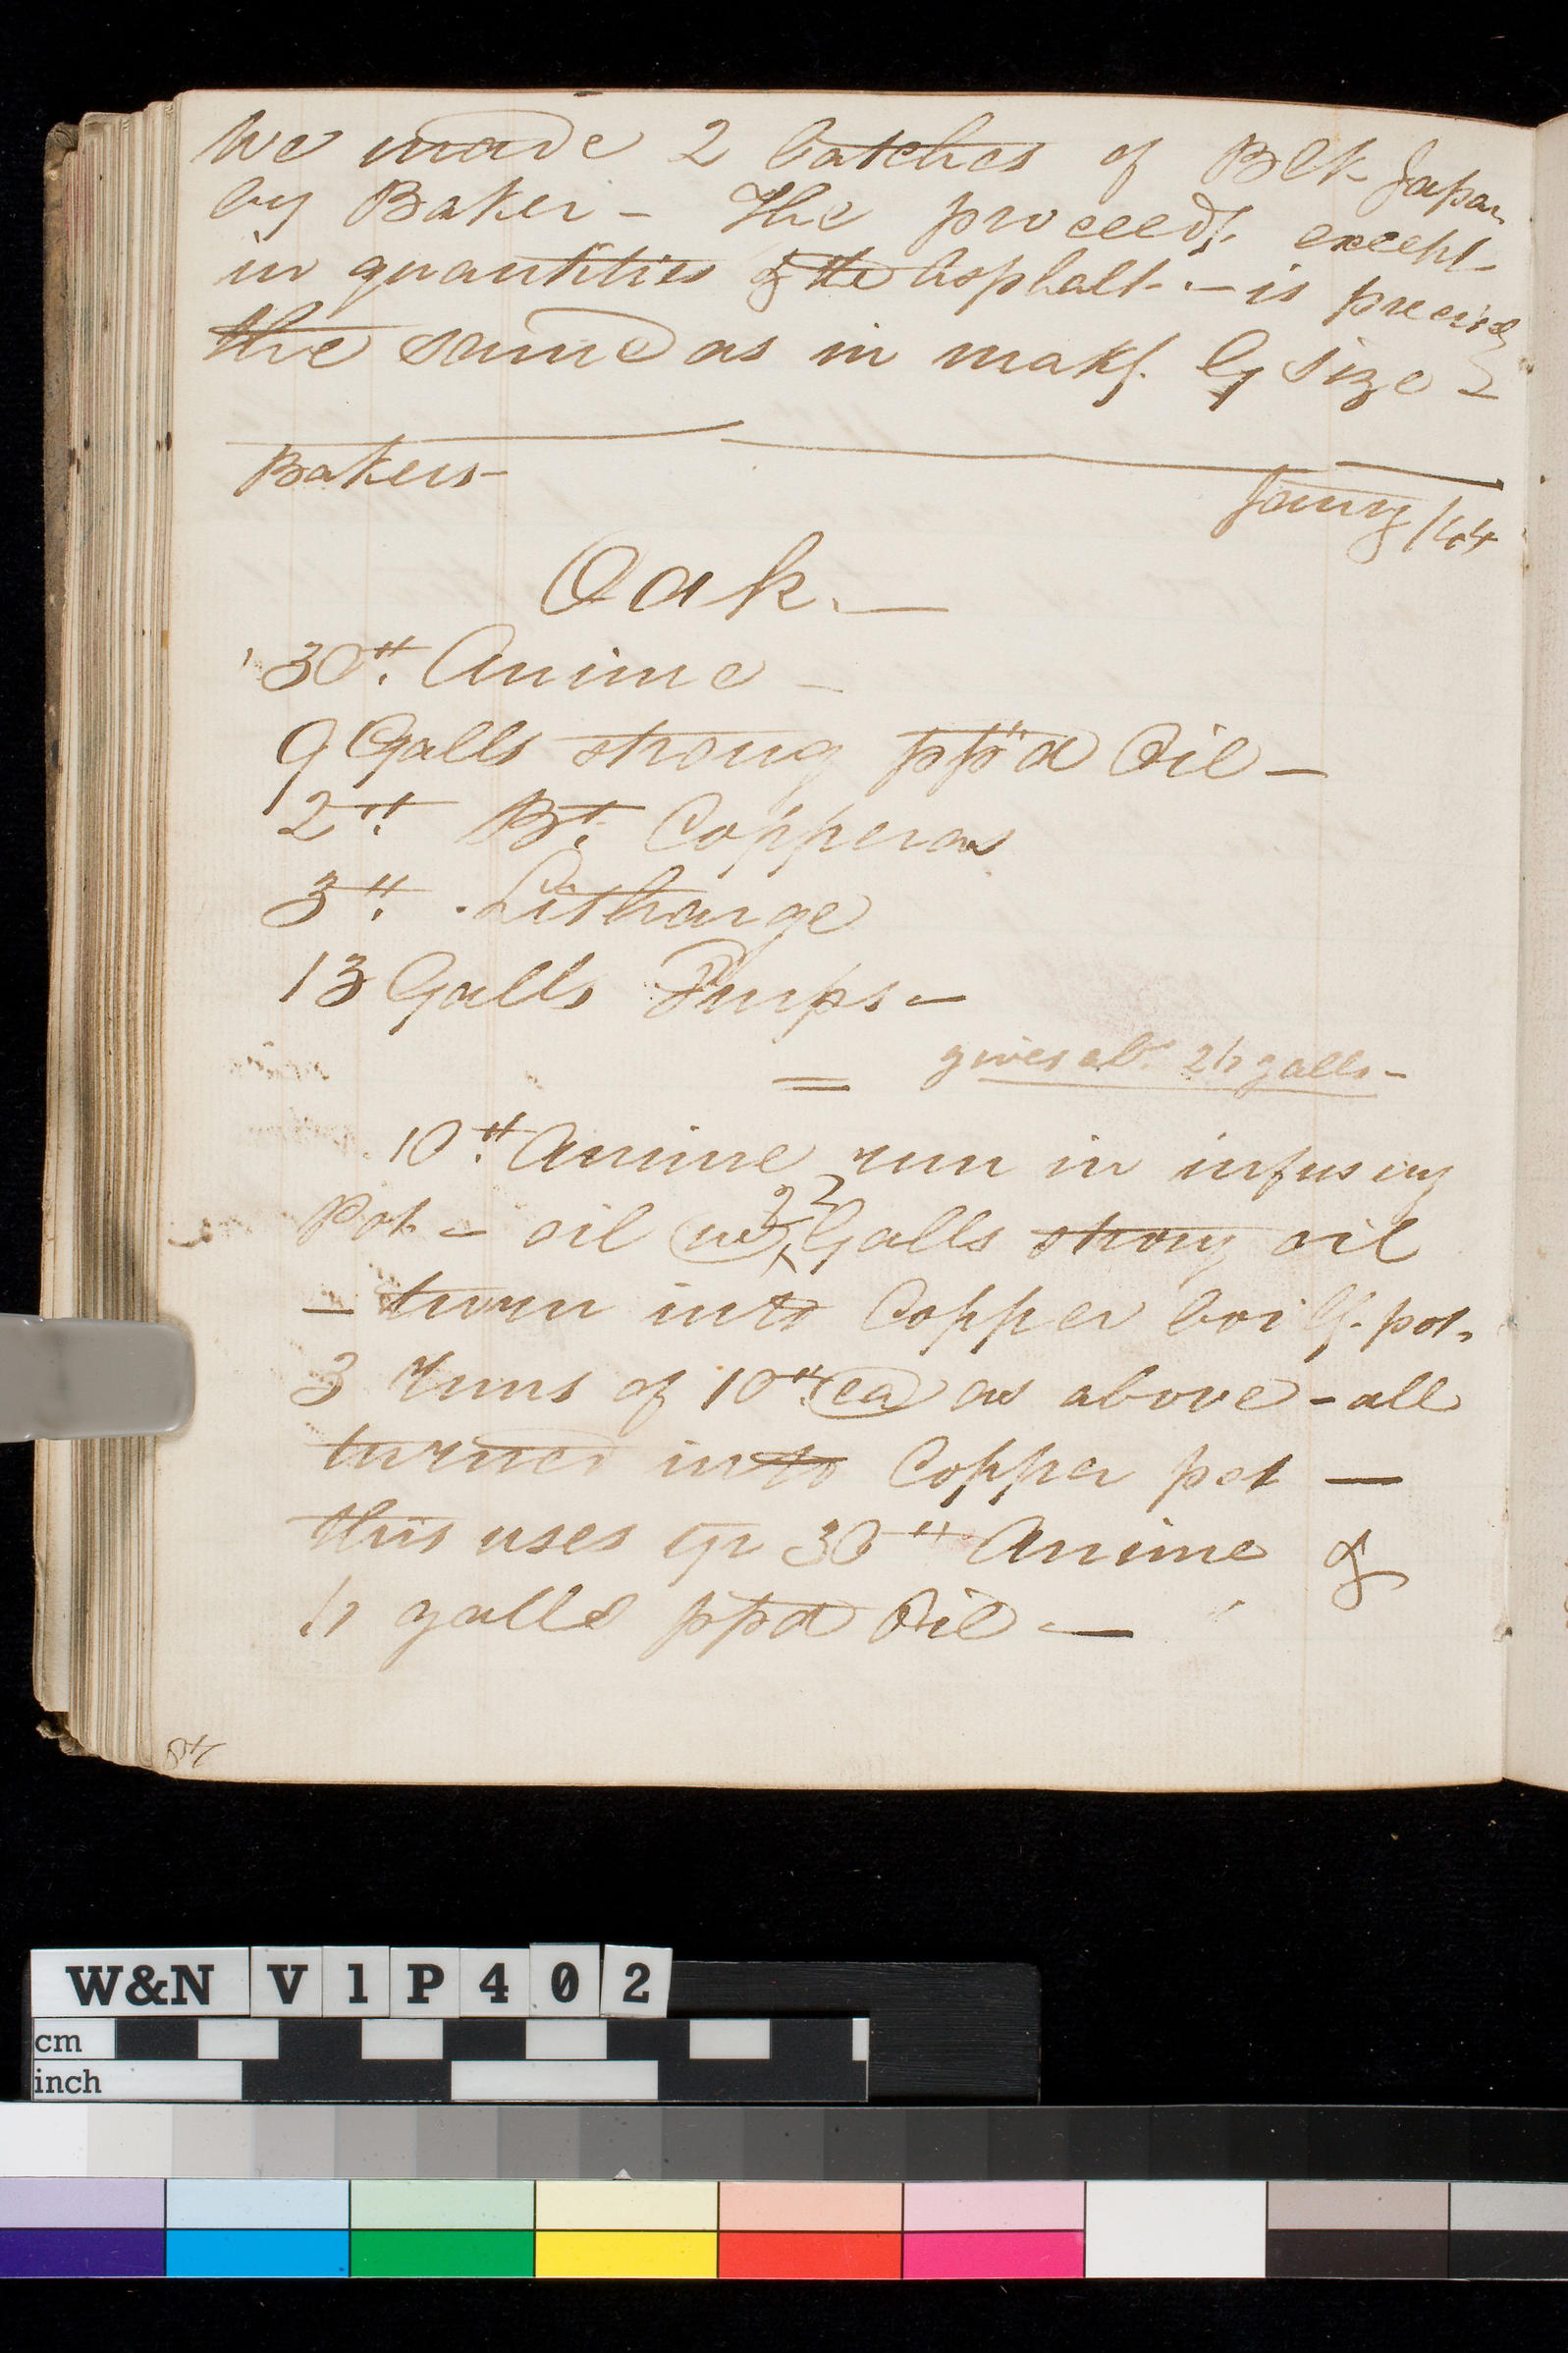 We made 2 batches of Blk Japan
by Baker - The proceedg. except
in quantities of the Asphalt - is precisely
the same as in makg. G Size -
Bakers - Jany/44
Oak. —
30 ℔. Anime -
9 Galls strong pp'd Oil -
2 ℔. Bt. Copperas
3 ℔. Litharge
13 Galls Turps -
= gives abt. 21 galls -
10 ℔. Anime run in infusing
Pot - oil w 2 Galls strong oil
- turn into Copper boilg. pot.
3 Runs of 10 ℔. ea as above - all
turned into Copper pot —
this uses up 30 ℔ Anime &
galls ppd Oil —
84
W&N V1P402
cm
inch